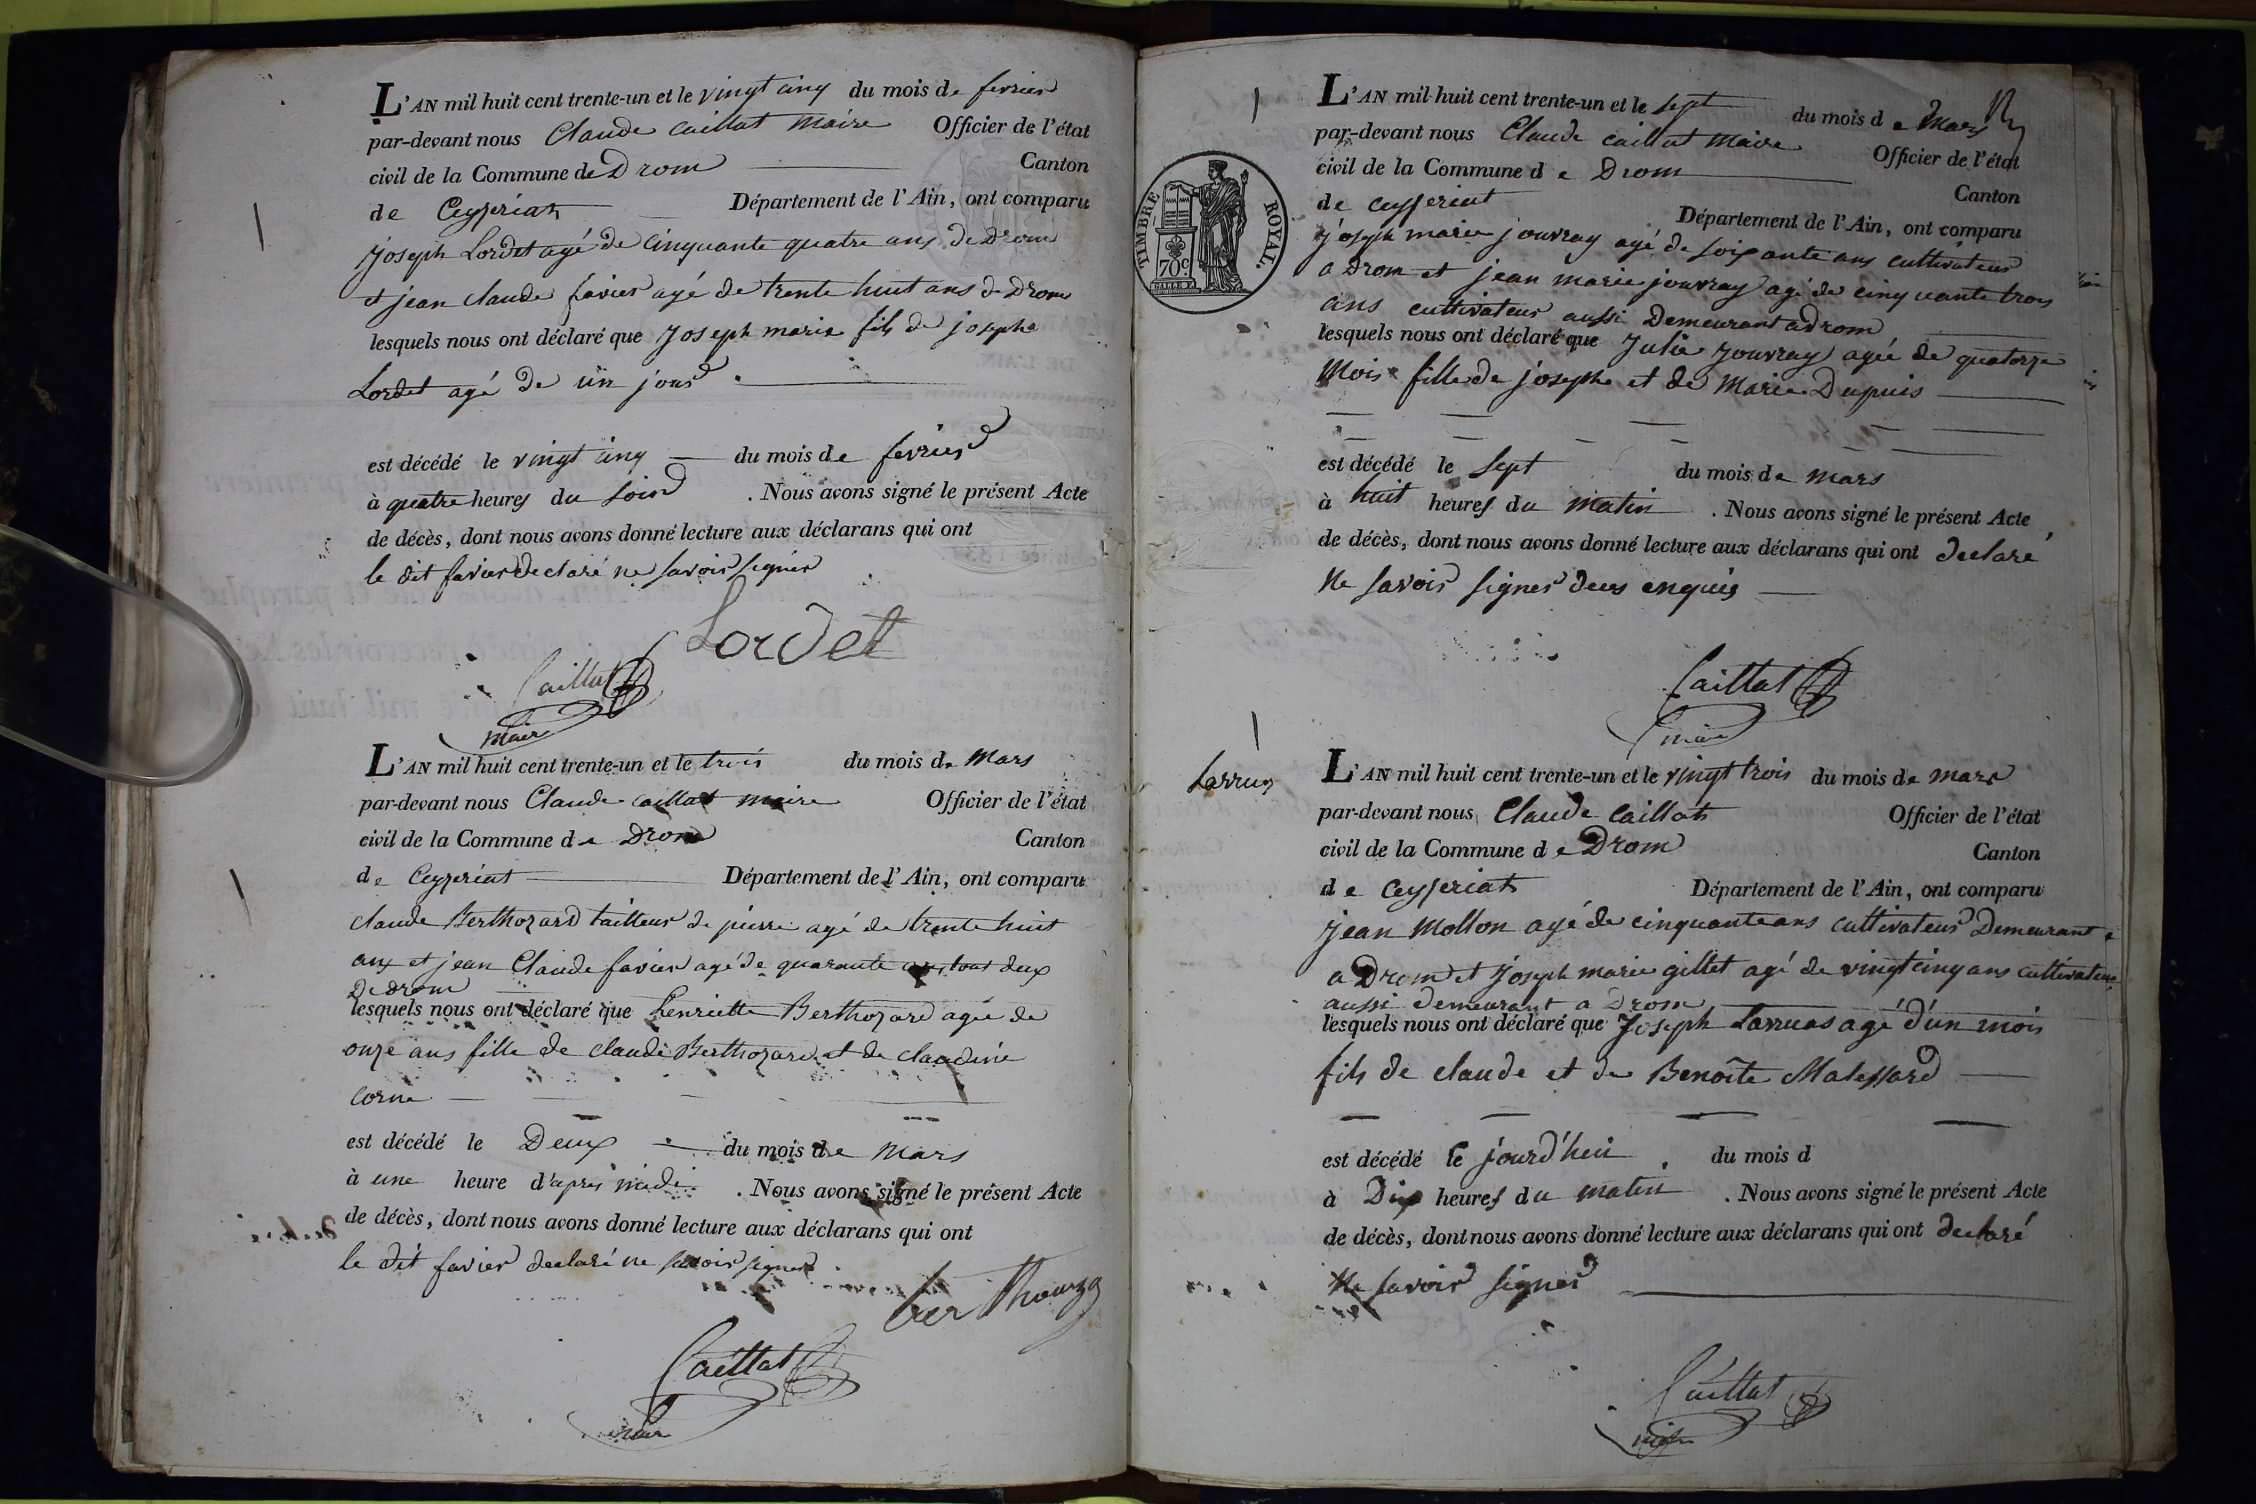 L'AN mil huit cent trente-un et le vingt cinq du mois de fevrier
par-devant nous Claude Caillat Maire Officier de l'état
civil de la Commune de Drom Canton
de Ceyzeriat Département de l'Ain, ont comparu
joseph Lordet agé de Cinquante quatre ans de Drom
et jean claude favier agé de trente huit ans de Drom
lesquels nous ont déclaré que Joseph marie fils de josephe
Lordet agé de un jour
est décédé le vingt cinq du mois de fevrier
à quatre heures du soir . Nous avons signé le présent Acte
de décès, dont nous avons donné lecture aux déclarans qui ont
le dit favier declaré ne savoir signer
Lordet
Caillat
maire
L'AN mil huit cent trente-un et le trois du mois de Mars
par-devant nous Claude caillat maire Officier de l'état
civil de la Commune de Drom Canton
de Ceyzeriat Département de l'Ain, ont comparu
claude Berthozard tailleur de pierre agé de trente huit
ans et jean Claude favier agé de quarante ans tout deux
De drom
lesquels nous ont déclaré que henriette Berthozard agée de
onze ans fille de claude Berthozard et de claudine
Corne
est décédé le Deux du mois de Mars
à une heure d'apres midi . Nous avons signé le présent Acte
de décès, dont nous avons donné lecture aux déclarans qui ont
le dit favier declaré ne savoir signer
Caillat
maire
TIMBRE ROYAL.
70c
L'AN mil huit cent trente-un et le sept du mois de Mars
par-devant nous Claude caillat maire Officier de l'état
civil de la Commune de Drom Canton
de ceyseriat Département de l'Ain, ont comparu
joseph marie jouvray agé de soixante ans cultivateur
a Drom et jean marie jouvray agé de cinquante trois
ans cultivateur aussi Demeurant a drom
lesquels nous ont déclaré que Julie jouvray agée de quatorze
Mois fille de josephe et de Marie Dupuis
est décédé le sept du mois de mars
à huit heures du matin . Nous avons signé le présent Acte
de décès, dont nous avons donné lecture aux déclarans qui ont declaré
Ne savoir signer deus enquis
Caillat
maire
Larruas
L'AN mil huit cent trente-un et le vingt trois du mois de mars
par-devant nous Claude Caillat Officier de l'état
civil de la Commune de Drom Canton
de Ceyseriat Département de l'Ain, ont comparu
jean Mollon agé de cinquante ans cultivateur Demeurant
a Drom et Joseph marie gillet agé de vingt cinq ans cultivateur
aussi demeurant a Drom
lesquels nous ont déclaré que Joseph Larruas agé d'un mois
fils de claude et de Benoite Malessard
est décédé le jourd'hui du mois d
à Dix heures du matin . Nous avons signé le présent Acte
de décès, dont nous avons donné lecture aux déclarans qui ont declaré
Ne savoir signer
Caillat